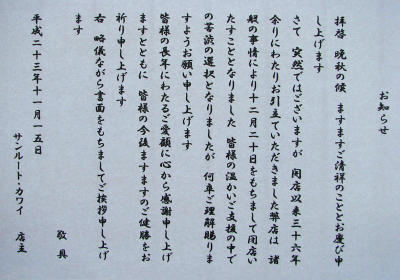 お知らせ
拝啓 晩秋の候 ますますご清祥のこととお慶び申
し上げます
さて 突然ではございますが 開店以来三十六年
余りにわたりお引立ていただきました弊店は 諸
般の事情により十二月二十日をもちまして閉店い
たすこととなりました 皆様の温かいご支援の中で
の苦渋の選択となりましたが 何卒ご理解賜りま
すようお願い申し上げます
皆様の長年にわたるご愛顧に心から感謝申し上げ
ますとともに 皆様の今後ますますのご健勝をお
祈り申し上げます
右 略儀ながら書面をもちましてご挨拶申し上げ
ます
敬具
平成二十三年十一月一五日
サンルート・カワイ 店主